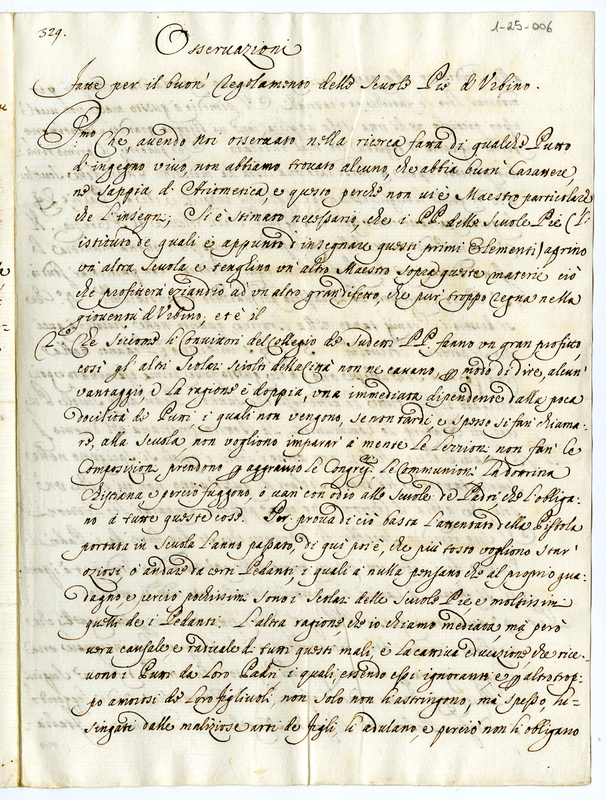 329.
1-25-006
Osservazioni
fatte per il buon' Regolamento delle Scuole Pie d'Urbino.
P.mo Che, avendo Noi osservato nella ricerca fatta di qualche Putto
d'ingegno vivo, non abbiamo trovato alcuno, che abbia buon' Carattere,
nè sappia d'Aritmetica e questo perchè non vi è Maestro particolare
che l'insegni; Si è stimato necessario, che i PP. delle Scuole Pie (l'
istituto de quali è appunto d'insegnare questi primi Elementi) aprino
un'altra Scuola e tenghino un'altro Maestro sopra queste materie ciò
che profitterà eziandio ad un altro gran difetto, che pur troppo regna nella
gioventù d'Urbino, et è il
(2.do Che siccome li Convittori del Collegio de sudetti PP. fanno un gran profitto,
così gl'altri Scolari sciolti della Città non ne cavano, p modo di dire, alcun'
vantaggio, e la ragione è doppia, una immediata dipendente dalla poca
docilità de Putti i quali non vengono, se non tardi e spesso si fan' chiama-
re, alla Scuola non vogliono imparar' a mente le Lezzioni non fan' le
Composizioni prendono p aggravio le Congreg.ni le Communioni la dottrina
Christiana e perciò fuggono, o van' con odio alle Scuole de Padri, che l'obliga-
no a tutte queste cose. Per prova di ciò basta l'attentato della Pistola
portata in Scuola l'anno passato, di qui poi è, che più tosto vogliono star'
oziosi o andare da certi Pedanti, i quali a nulla pensano che al proprio gua-
dagno e perciò pochissimi sono i Scolari delle Scuole Pie e moltissimi
quelli de i Pedanti. L'altra ragione che io chiamo mediata, mà però
vera causale e radicale di tutti questi mali, è la cattiva educazione, che rice-
vono i Putti da loro Padri i quali essendo essi ignoranti e p altro trop-
po amorosi de loro figliuoli, non solo non li astringono, mà spesso, lu-
singati dalle maliziose arti de figli li adulano, e perciò non li obligano